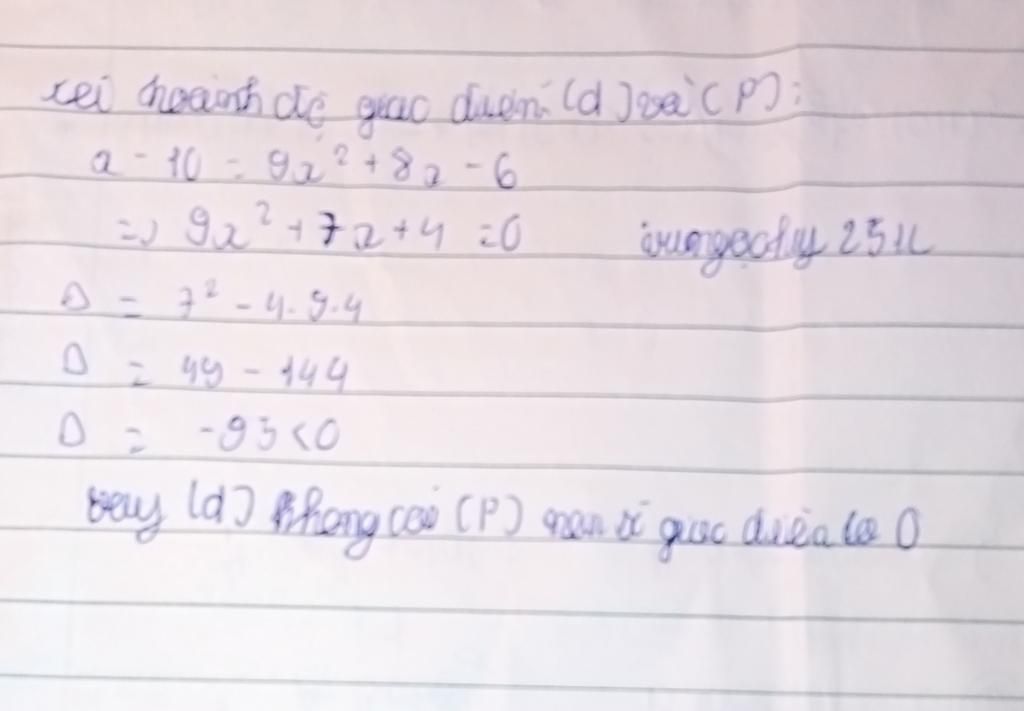 xét hoành độ giao điểm (d) và (P):
x - 10 = 9x² + 8x - 6
=> 9x² + 7x + 4 = 0
Δ = 7² - 4.9.4
Δ = 49 - 144
Δ = -95 < 0
vậy (d) không cắt (P) nên số giao điểm là 0